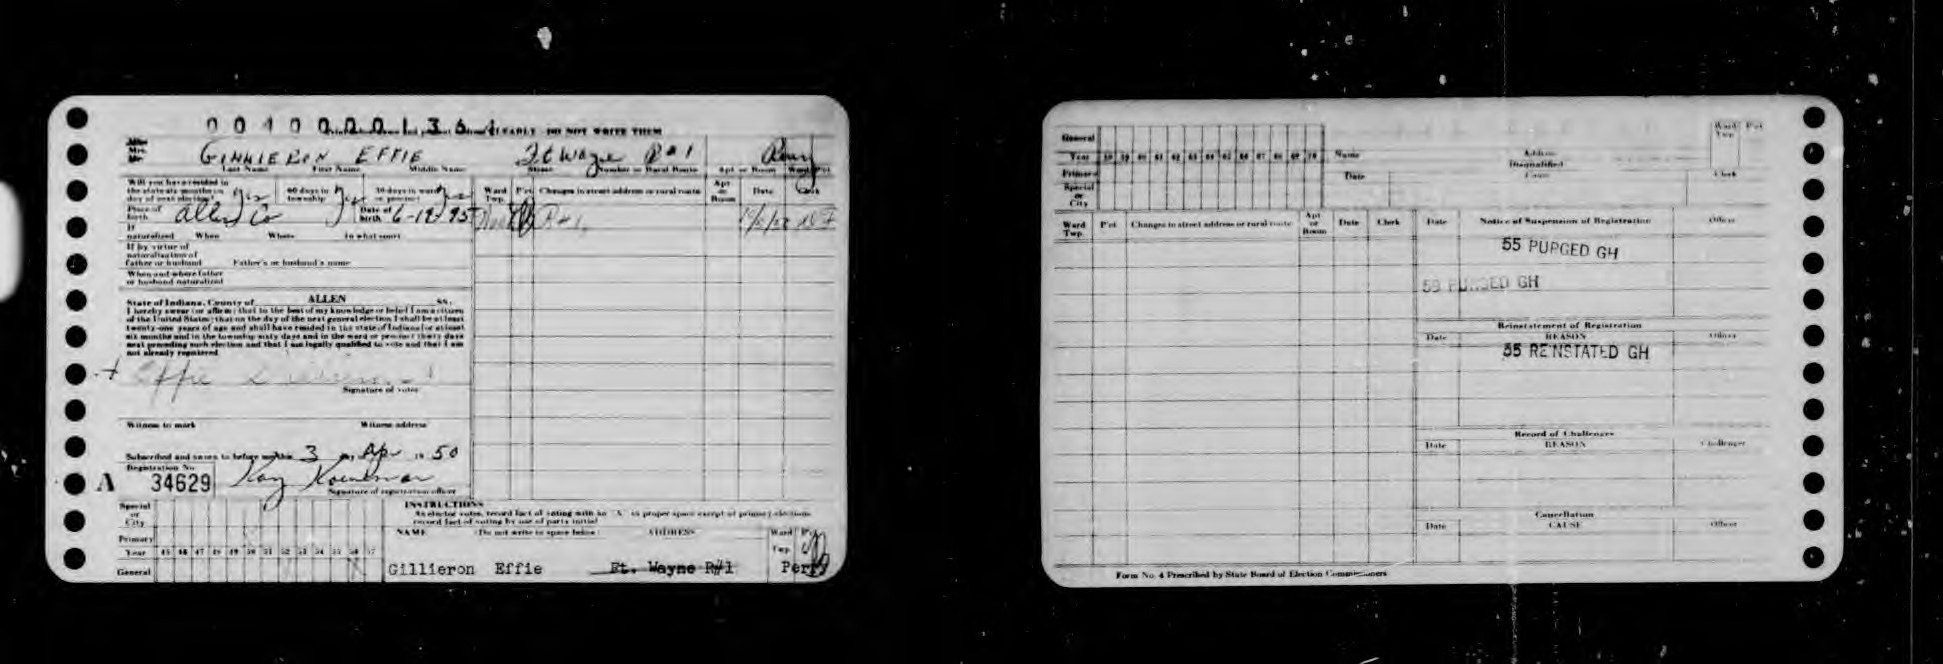 0040000136
CLEARLY - DO NOT WRITE THEM
Mrs.
Mr.
GILLIERON EFFIE Ft Wayne R#1 Perry
Last Name First Name Middle Name Street Number or Rural Route Apt or Room Ward P'ct
Will you have resided in
the state six months on
day of next election? Yes
60 days in
township Yes
30 days in ward
or precinct Yes
Place of
birth Allen Co
Date of
birth 6-18-95
If
naturalized When Where In what court
If by virtue of
naturalization of
father or husband Father's or husband's name
When and where father
or husband naturalized
Ward
Twp. P'ct Changes in street address or rural route Apt
or
Room Date Clerk
R#1,
State of Indiana, County of ALLEN ss:
I hereby swear (or affirm) that to the best of my knowledge or belief I am a citizen
of the United States; that on the day of the next general election I shall be at least
twenty-one years of age and shall have resided in the state of Indiana for at least
six months and in the township sixty days and in the ward or precinct thirty days
next preceding such election and that I am legally qualified to vote and that I am
not already registered.
Effie
Signature of voter
Witness to mark Witness address
Subscribed and sworn to before me this 3 day Apr 19 50
Registration No.
A 34629
Signature of registration officer
Special
or
City
Primary
Year 45 46 47 48 49 50 51 52 53 54 55 56 57
General
INSTRUCTIONS
As elector votes, record fact of voting with an "X" in proper space except at primary elections
record fact of voting by use of party initial
NAME (Do not write in space below) ADDRESS Ward
Twp. P'ct
Gillieron Effie Ft. Wayne R#1 Perry
General
Year 58 59 60 61 62 63 64 65 66 67 68 69 70
Primary
Special
or
City
Name Address Ward
Twp. P'ct
Disqualified
Date Cause Clerk
Ward
Twp. P'ct Changes in street address or rural route Apt
or
Room Date Clerk
Date Notice of Suspension of Registration Officer
55 PURGED GH
59 PURGED GH
Reinstatement of Registration
Date REASON Officer
55 REINSTATED GH
Record of Challenges
Date REASON Challenger
Cancellation
Date CAUSE Officer
Form No. 4 Prescribed by State Board of Election Commissioners